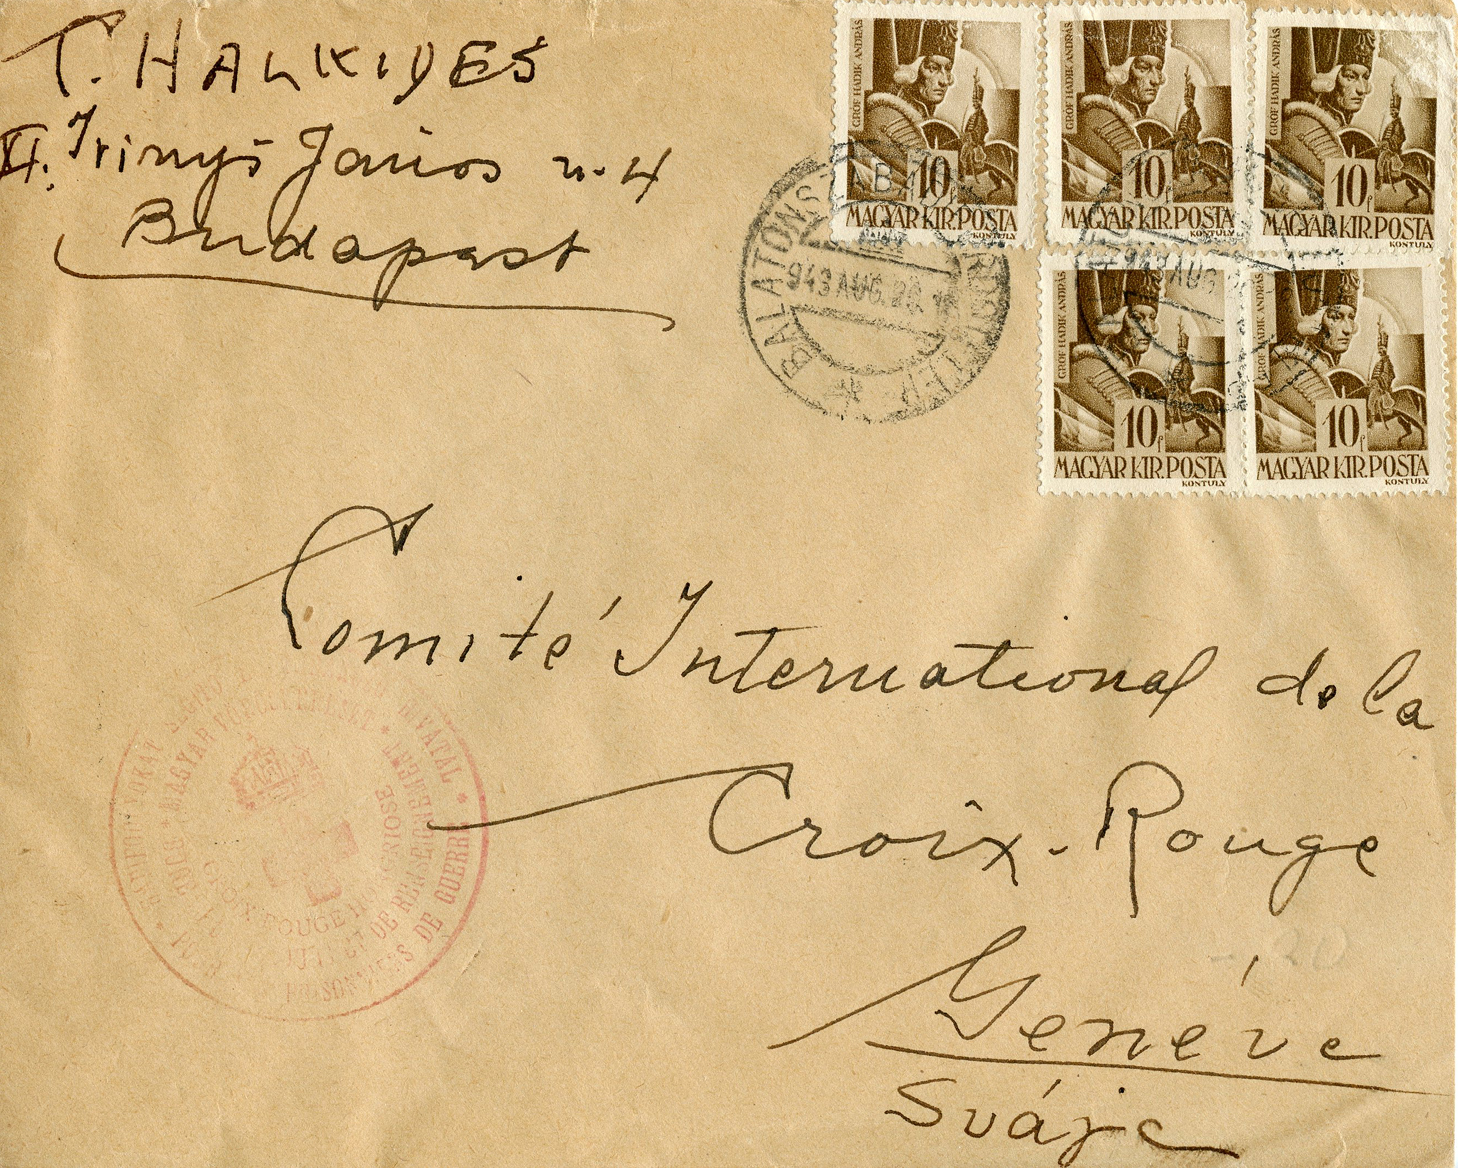 T. HALKIDES
XI. Irinyi János u. 4
Budapest
GRÓF HADIK ANDRÁS
10f
MAGYAR KIR. POSTA
KONTULY
GRÓF HADIK ANDRÁS
10f
MAGYAR KIR. POSTA
KONTULY
GRÓF HADIK ANDRÁS
10f
MAGYAR KIR. POSTA
KONTULY
GRÓF HADIK ANDRÁS
10f
MAGYAR KIR. POSTA
KONTULY
GRÓF HADIK ANDRÁS
10f
MAGYAR KIR. POSTA
KONTULY
943 AUG.
943 AUG
Comité International de la
Croix-Rouge
Genéve
Svájc
MAGYAR
CROIX ROUGE
DE RENSEIGNEMENT
PRISONNIERS DE GUERRE